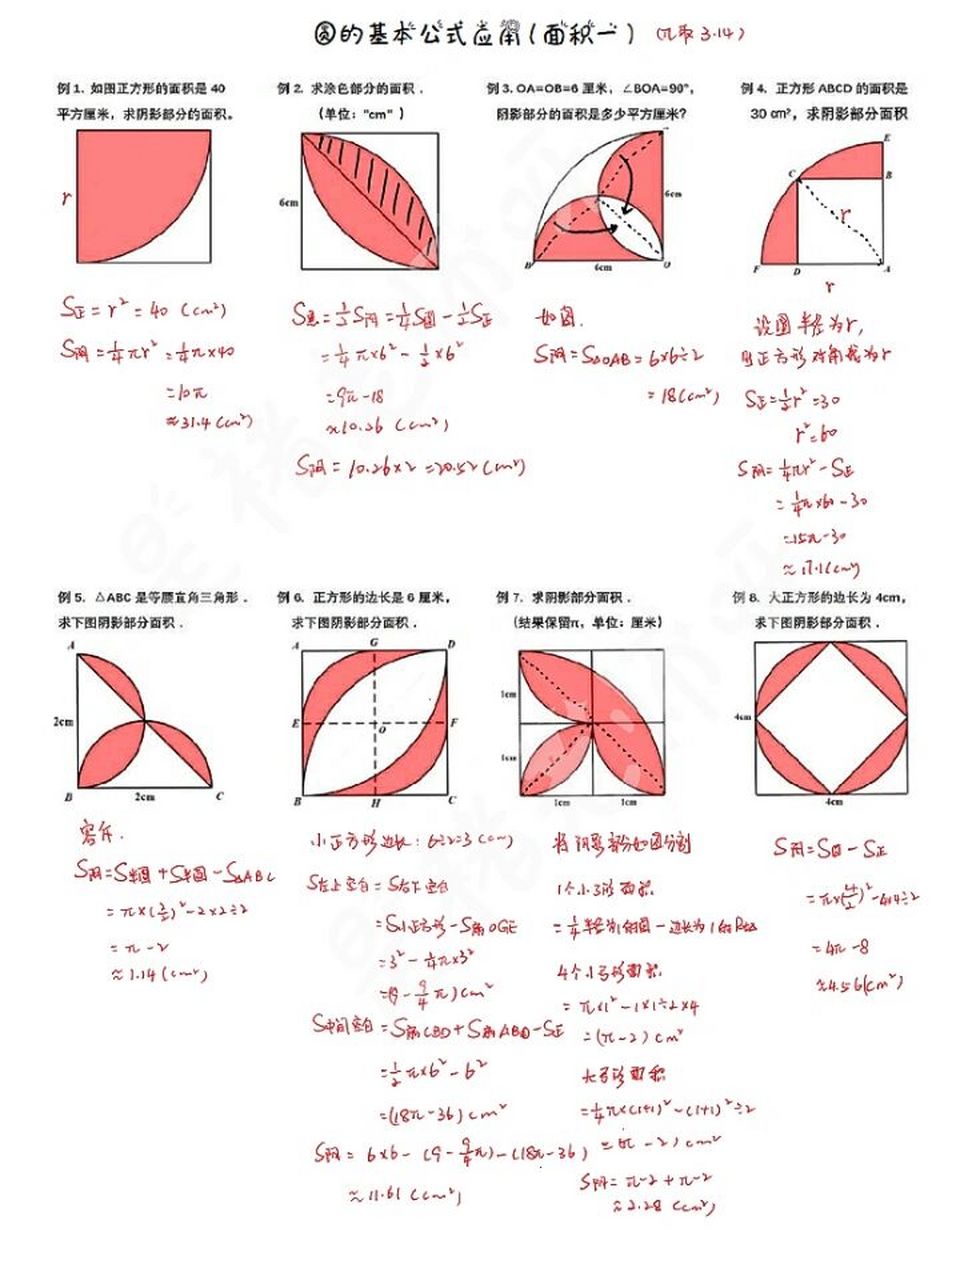 圆的基本公式应用(面积一) (π取3.14)
例1. 如图正方形的面积是 40
平方厘米，求阴影部分的面积。
r
S正=r²=40 (cm²)
S阴=¼πr²=¼π×40
=10π
≈31.4(cm²)
例2. 求涂色部分的面积.
(单位："cm")
6cm
=½S阴=¼S圆-½S正
=¼π×6²-½×6²
=9π-18
≈10.26 (cm²)
S阴=10.26×2=20.52(cm²)
例3. OA=OB=6 厘米，∠BOA=90°，
阴影部分的面积是多少平方厘米?
6cm
B
6cm
O
如图.
S阴=S△OAB=6×6÷2
=18(cm²)
例4. 正方形 ABCD 的面积是
30 cm²，求阴影部分面积
E
C
B
r
F
D
A
r
设圆半径为r,
则正方形对角线为r
S正=½r²=30
r²=60
S阴=¼πr²-S正
=¼π×60-30
=15π-30
≈17.1(cm²)
例5. △ABC 是等腰直角三角形.
求下图阴影部分面积.
A
2cm
B
2cm
C
容斥.
S阴=S半圆+S半圆-S△ABC
=π×(2/2)²-2×2÷2
=π-2
≈1.14(cm²)
例6. 正方形的边长是 6 厘米，
求下图阴影部分面积.
A
G
D
E
O
F
B
H
C
小正方形边长：6÷2=3(cm)
S左上空白=S右下空白
=S小正方形-S扇OGE
=3²-¼π×3²
=(9-9/4π)cm²
S中间空白=S扇CBD+S扇ABD-S正
=½π×6²-6²
=(18π-36)cm²
S阴=6×6-(9-9/4π)-(18π-36)
≈11.61(cm²)
例7. 求阴影部分面积.
(结果保留π，单位：厘米)
1cm
1cm
1cm
1cm
将阴影部分如图分割
1个小弓形面积
4个小弓形面积
=π×1²-1×1÷2×4
=(π-2)cm²
大弓形面积
=¼π×(1+1)²-(1+1)²÷2
=(π-2)cm²
S阴=π-2+π-2
≈2.28(cm²)
例8. 大正方形的边长为 4cm，
求下图阴影部分面积.
4cm
4cm
S阴=S圆-S正
=π×(4/2)²-4×4÷2
=4π-8
≈4.56(cm²)